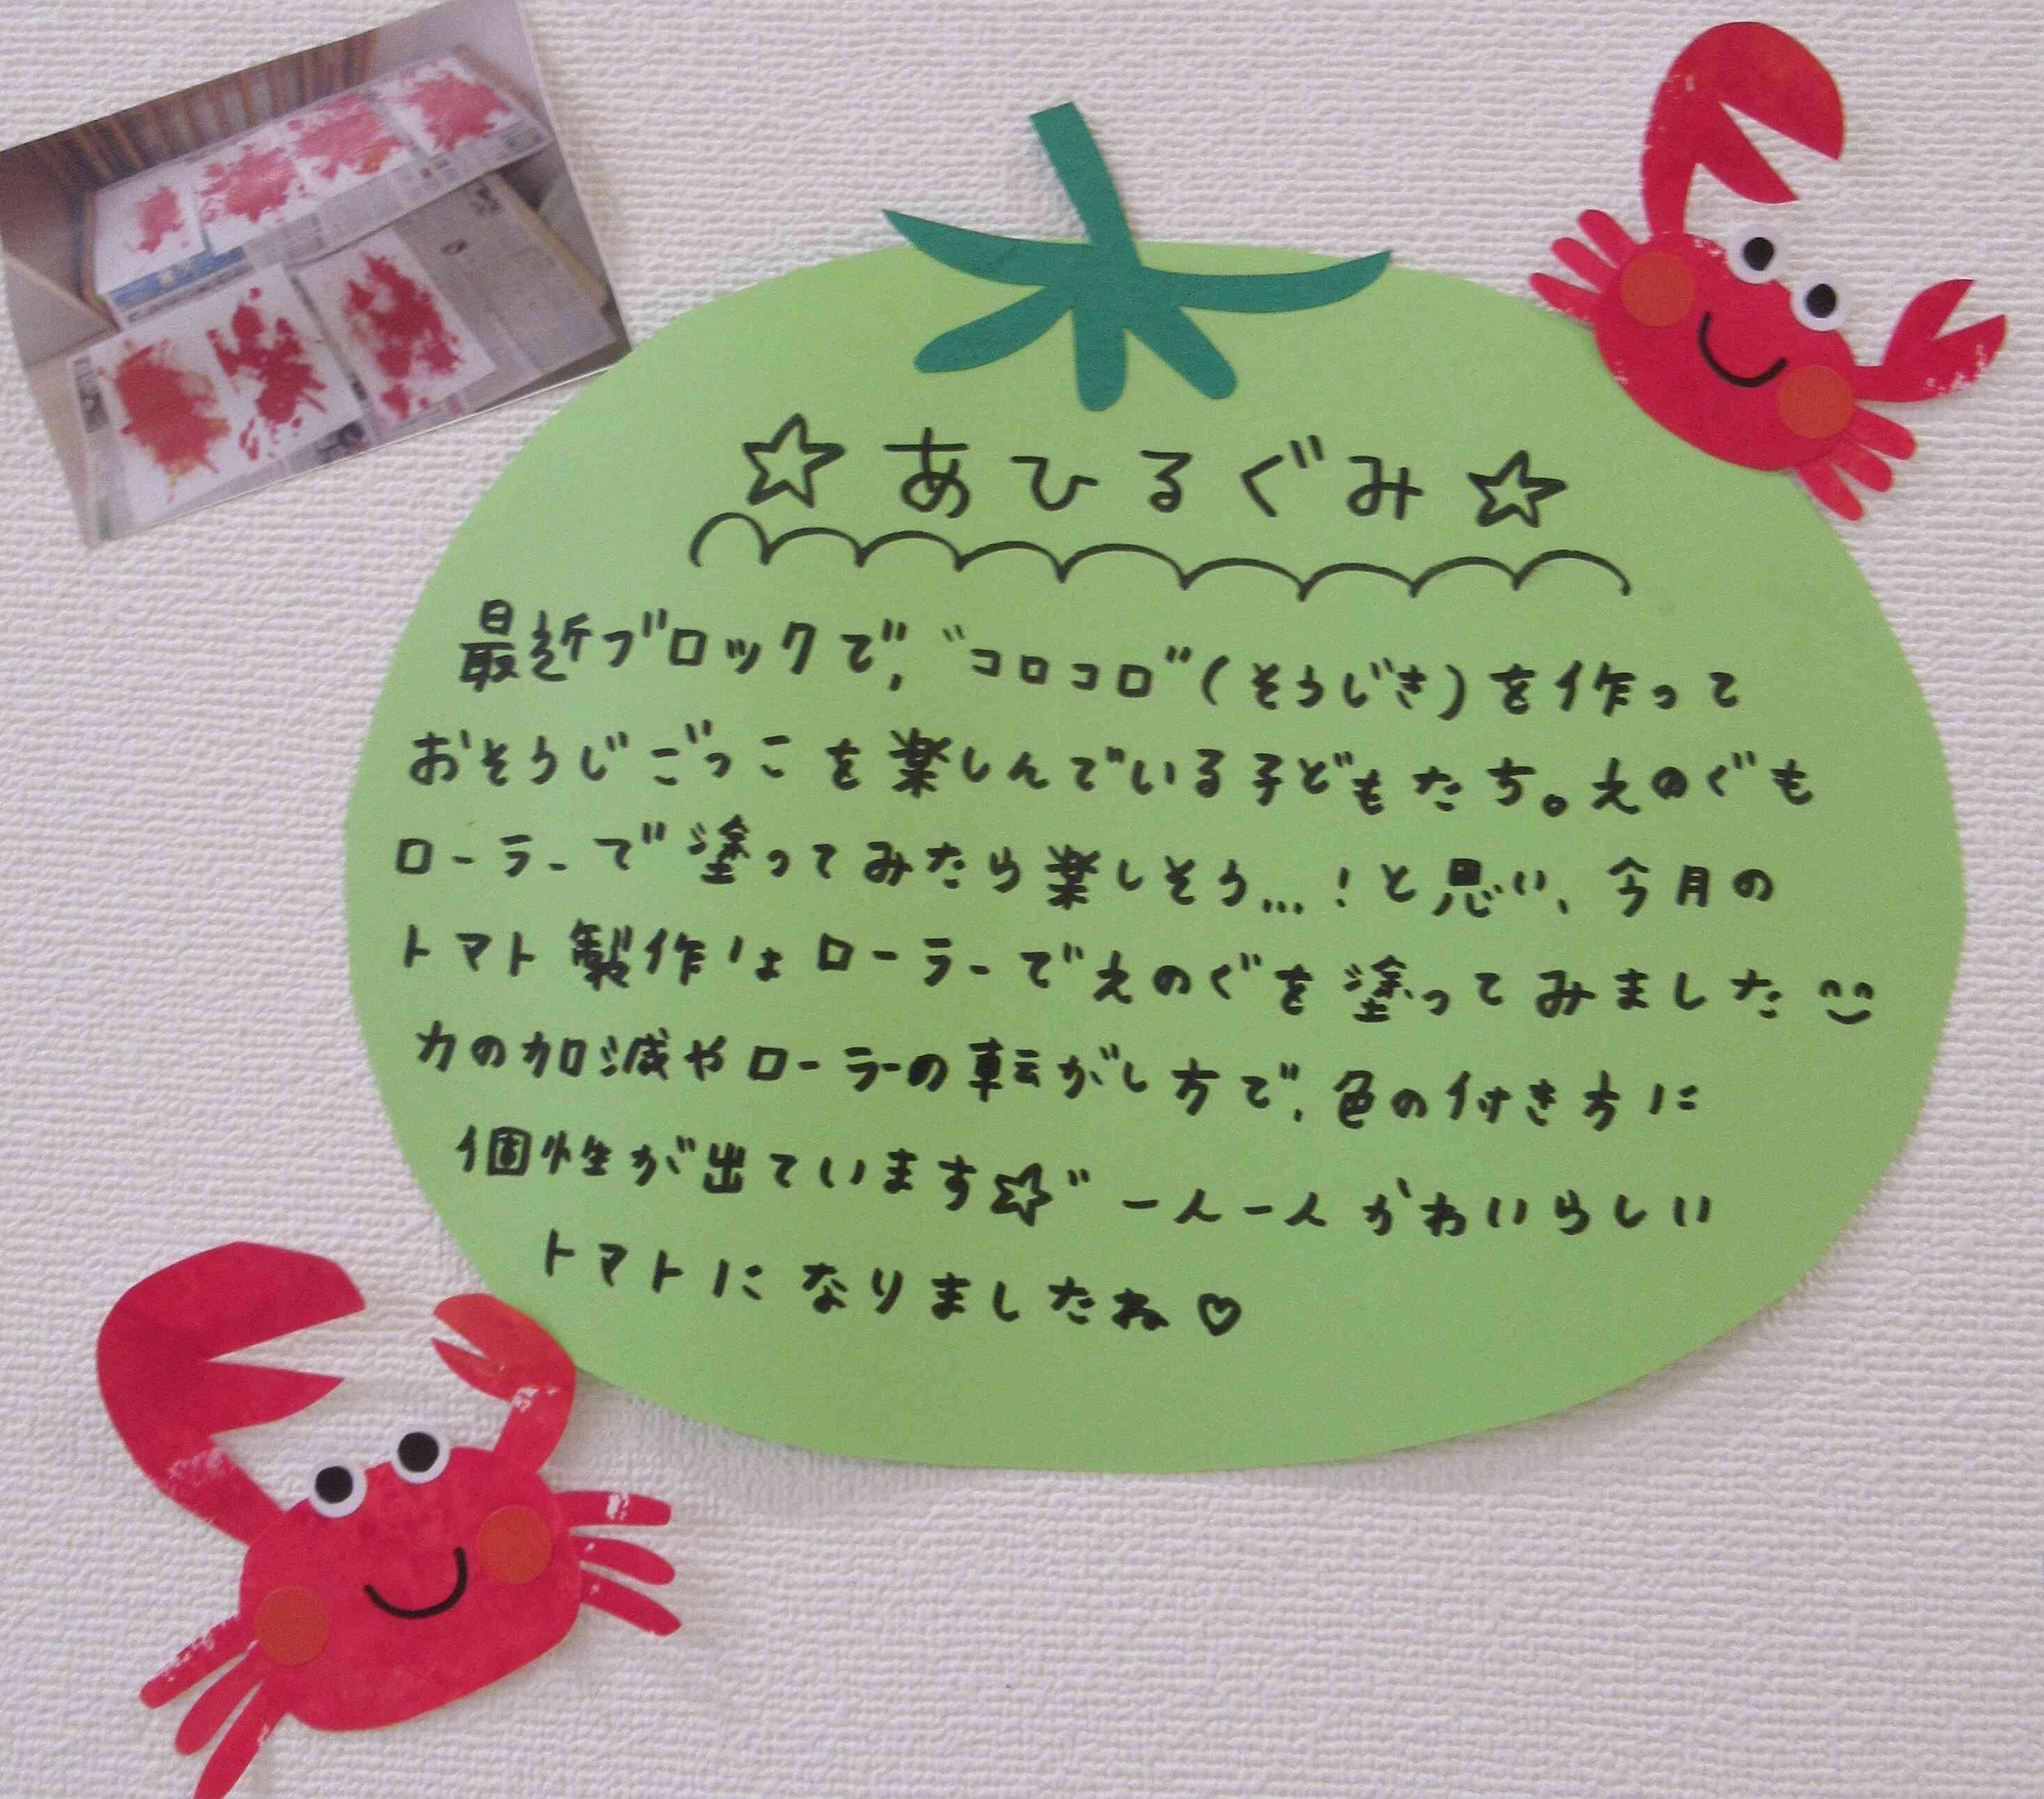 ☆あひるぐみ☆
最近ブロックで、"コロコロ"(そうじき)を作って
おそうじごっこを楽しんでいる子どもたち。えのぐも
ローラーで塗ってみたら楽しそう…!と思い、今月の
トマト製作はローラーでえのぐを塗ってみました
力の加減やローラーの転がし方で、色の付き方に
個性が出ています☆゛一人一人かわいらしい
トマトになりましたね♡